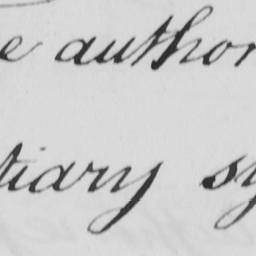 e author
tiary sy